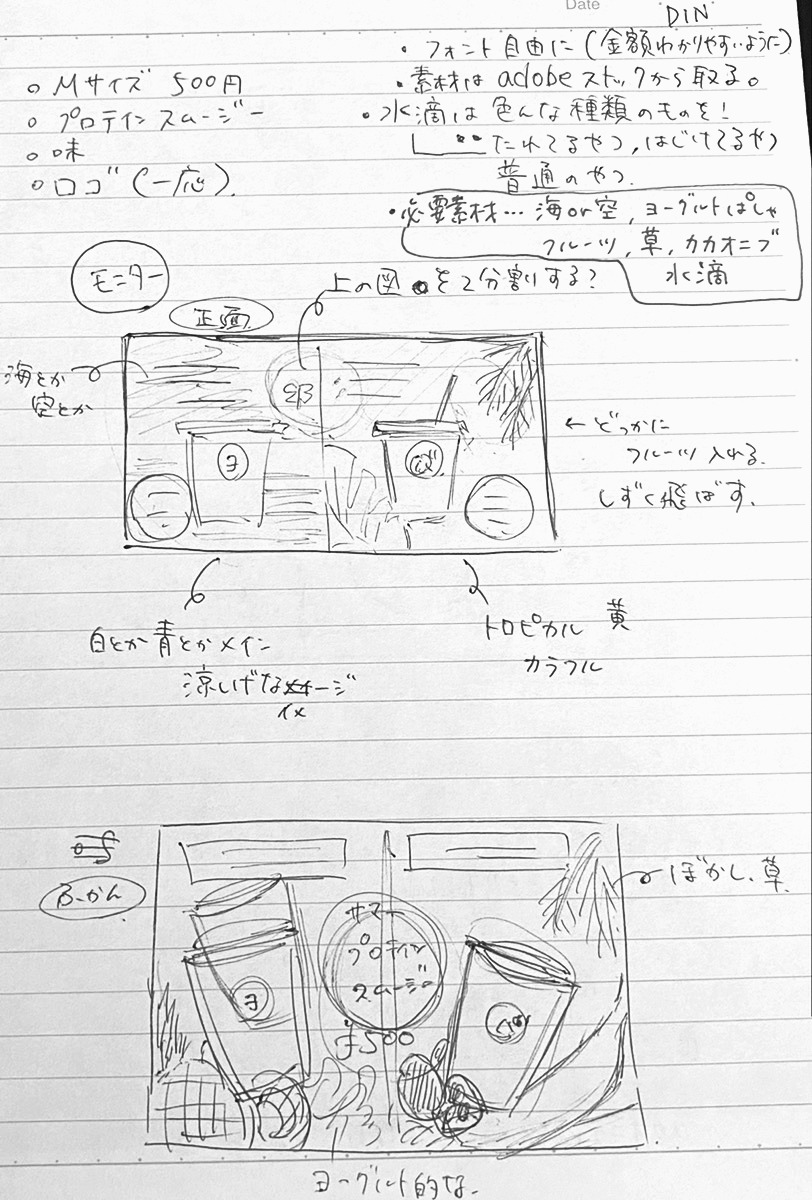 Date
DIN
・フォント自由に(金額わかりやすいように)
・素材はadobeストックから取る。
・水滴は色んな種類のものを!
たれてるやつ,はじけてるやつ
普通のやつ
・必要素材…海or空,ヨーグルトぱしゃ
フルーツ,草,カカオニブ
水滴
○Mサイズ 500円
○プロテインスムージー
○味
○ロゴ(一応).
モニター
正面
上の図を2分割する?
海とか
空とか
ヨ
←どっかに
フルーツ入れる.
しずく飛ばす.
白とか青とかメイン
涼しげな
イメージ
トロピカル 黄
カラフル
ふかん
ぼかし、草
サマー
プロテイン
スムージー
¥500
ヨ
ヨーグルト的な.